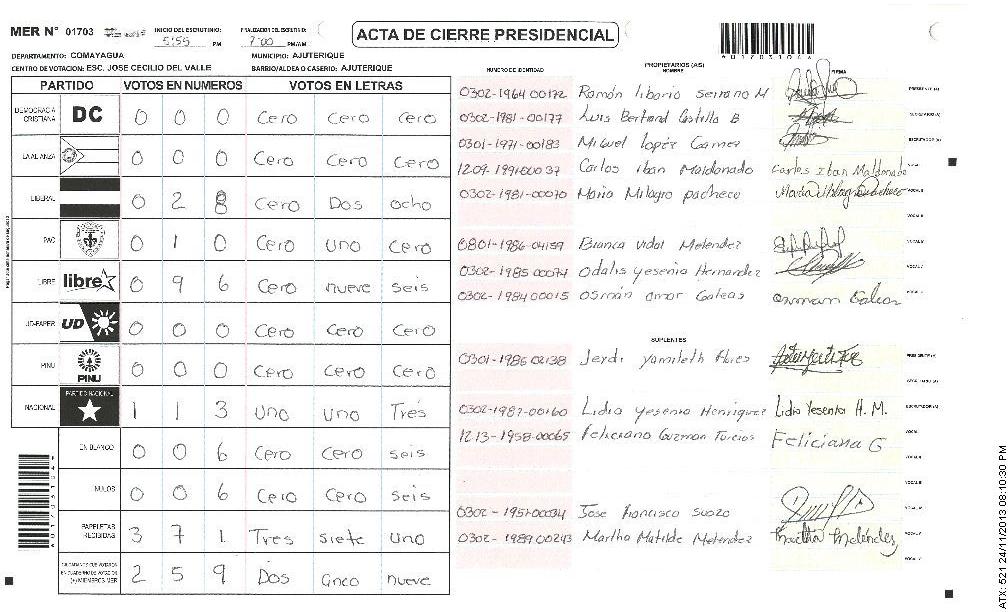 MER N° 01703
INICIO DEL ESCRUTINIO: 5:55 PM
FINALIZACION DEL ESCRUTINIO: 7:00 PM/AM
ACTA DE CIERRE PRESIDENCIAL
DEPARTAMENTO: COMAYAGUA
MUNICIPIO: AJUTERIQUE
CENTRO DE VOTACION: ESC. JOSE CECILIO DEL VALLE
BARRIO/ALDEA O CASERIO: AJUTERIQUE
PARTIDO VOTOS EN NUMEROS VOTOS EN LETRAS
DEMOCRACIA CRISTIANA DC 0 0 0 Cero Cero Cero
LA ALIANZA 0 0 0 Cero Cero Cero
LIBERAL 0 2 8 Cero Dos ocho
PAC 0 1 0 Cero uno Cero
LIBRE libre 0 9 6 Cero nueve seis
UD-FAPER UD 0 0 0 Cero Cero Cero
PINU PINU 0 0 0 Cero Cero Cero
NACIONAL PARTIDO NACIONAL 1 1 3 Uno Uno Tres
EN BLANCO 0 0 6 Cero Cero seis
NULOS 0 0 6 Cero Cero seis
PAPELETAS RECIBIDAS 3 7 1 Tres siete uno
CIUDADANOS QUE VOTARON EN CUADERNO DE VOTACION (+) MIEMBROS MER 2 5 9 Dos cinco nueve
PROPIETARIOS (AS)
NUMERO DE IDENTIDAD NOMBRE FIRMA
0302-1964 00172 Ramón liborio serrano M PRESIDENTE (A)
0302-1981-00177 Luis Bertrand Castillo B SECRETARIO (A)
0301-1971-00183 Miguel lopez Gomez ESCRUTADOR (A)
1209-1991-00037 Carlos iban Maldonado Carlos Iban Maldonado VOCAL I
0302-1981-00070 Maria Milagro pacheco VOCAL II
VOCAL III
0801-1986-04159 Bianca Vidal Melendez VOCAL IV
0302-1985 00074 Odalis yesenia Hernandez VOCAL V
0302-1984 00015 Osmán omar Galeas Osman Galeas
SUPLENTES
0301-1986 02138 Jeydi yamileth Flores PRESIDENTE (A)
SECRETARIO (A)
0302-1987-00160 Lidia yesenia Henriquez Lidia Yesenia H. M. ESCRUTADOR (A)
1213-1958-00065 Feliciano Guzman Turcios Feliciana G VOCAL I
VOCAL II
VOCAL III
0302-1951-00034 Jose francisco suazo VOCAL IV
0302-1989 00243 Martha Matilde Melendez Martha Meléndez VOCAL V
ATX: 521 24/11/2013 08:10:30 PM